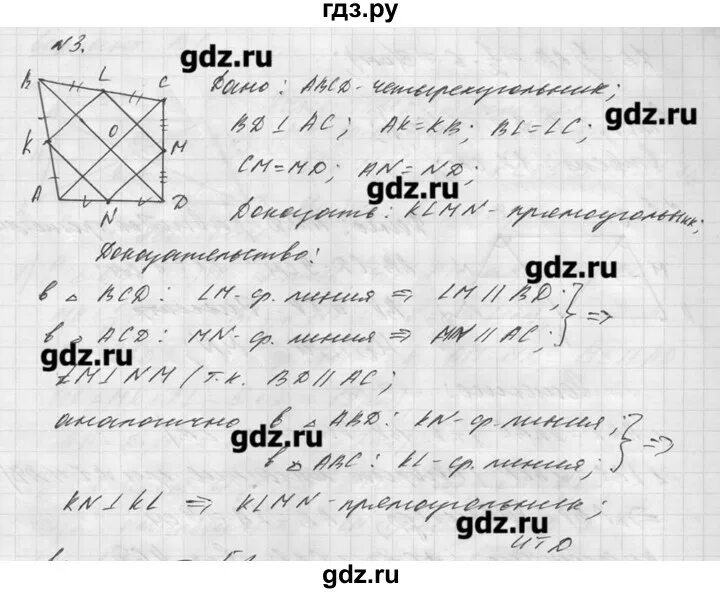 гдз.ру
N3.
gdz.ru
B L C
Дано: ABCD-четырехугольник;
gdz.ru
O
K M
BD⊥AC; AK=KB; BL=LC;
CM=MD; AN=ND;
gdz.ru
A N D
Доказать: KLMN-прямоугольник;
Доказательство:
gdz.ru
в △ BCD: LM-ср. линия ⇒ LM ∥ BD;
в △ ACD: MN-ср. линия ⇒ MN ∥ AC; } ⇒
gdz.ru
LM⊥NM / т.к. BD ∥ AC;
аналогично в △ ABD: KN-ср. линия;
gdz.ru
в △ ABC: KL-ср. линия; } ⇒
KN⊥KL ⇒ KLMN-прямоугольник;
gdz.ru
ЧТД
gdz.ru